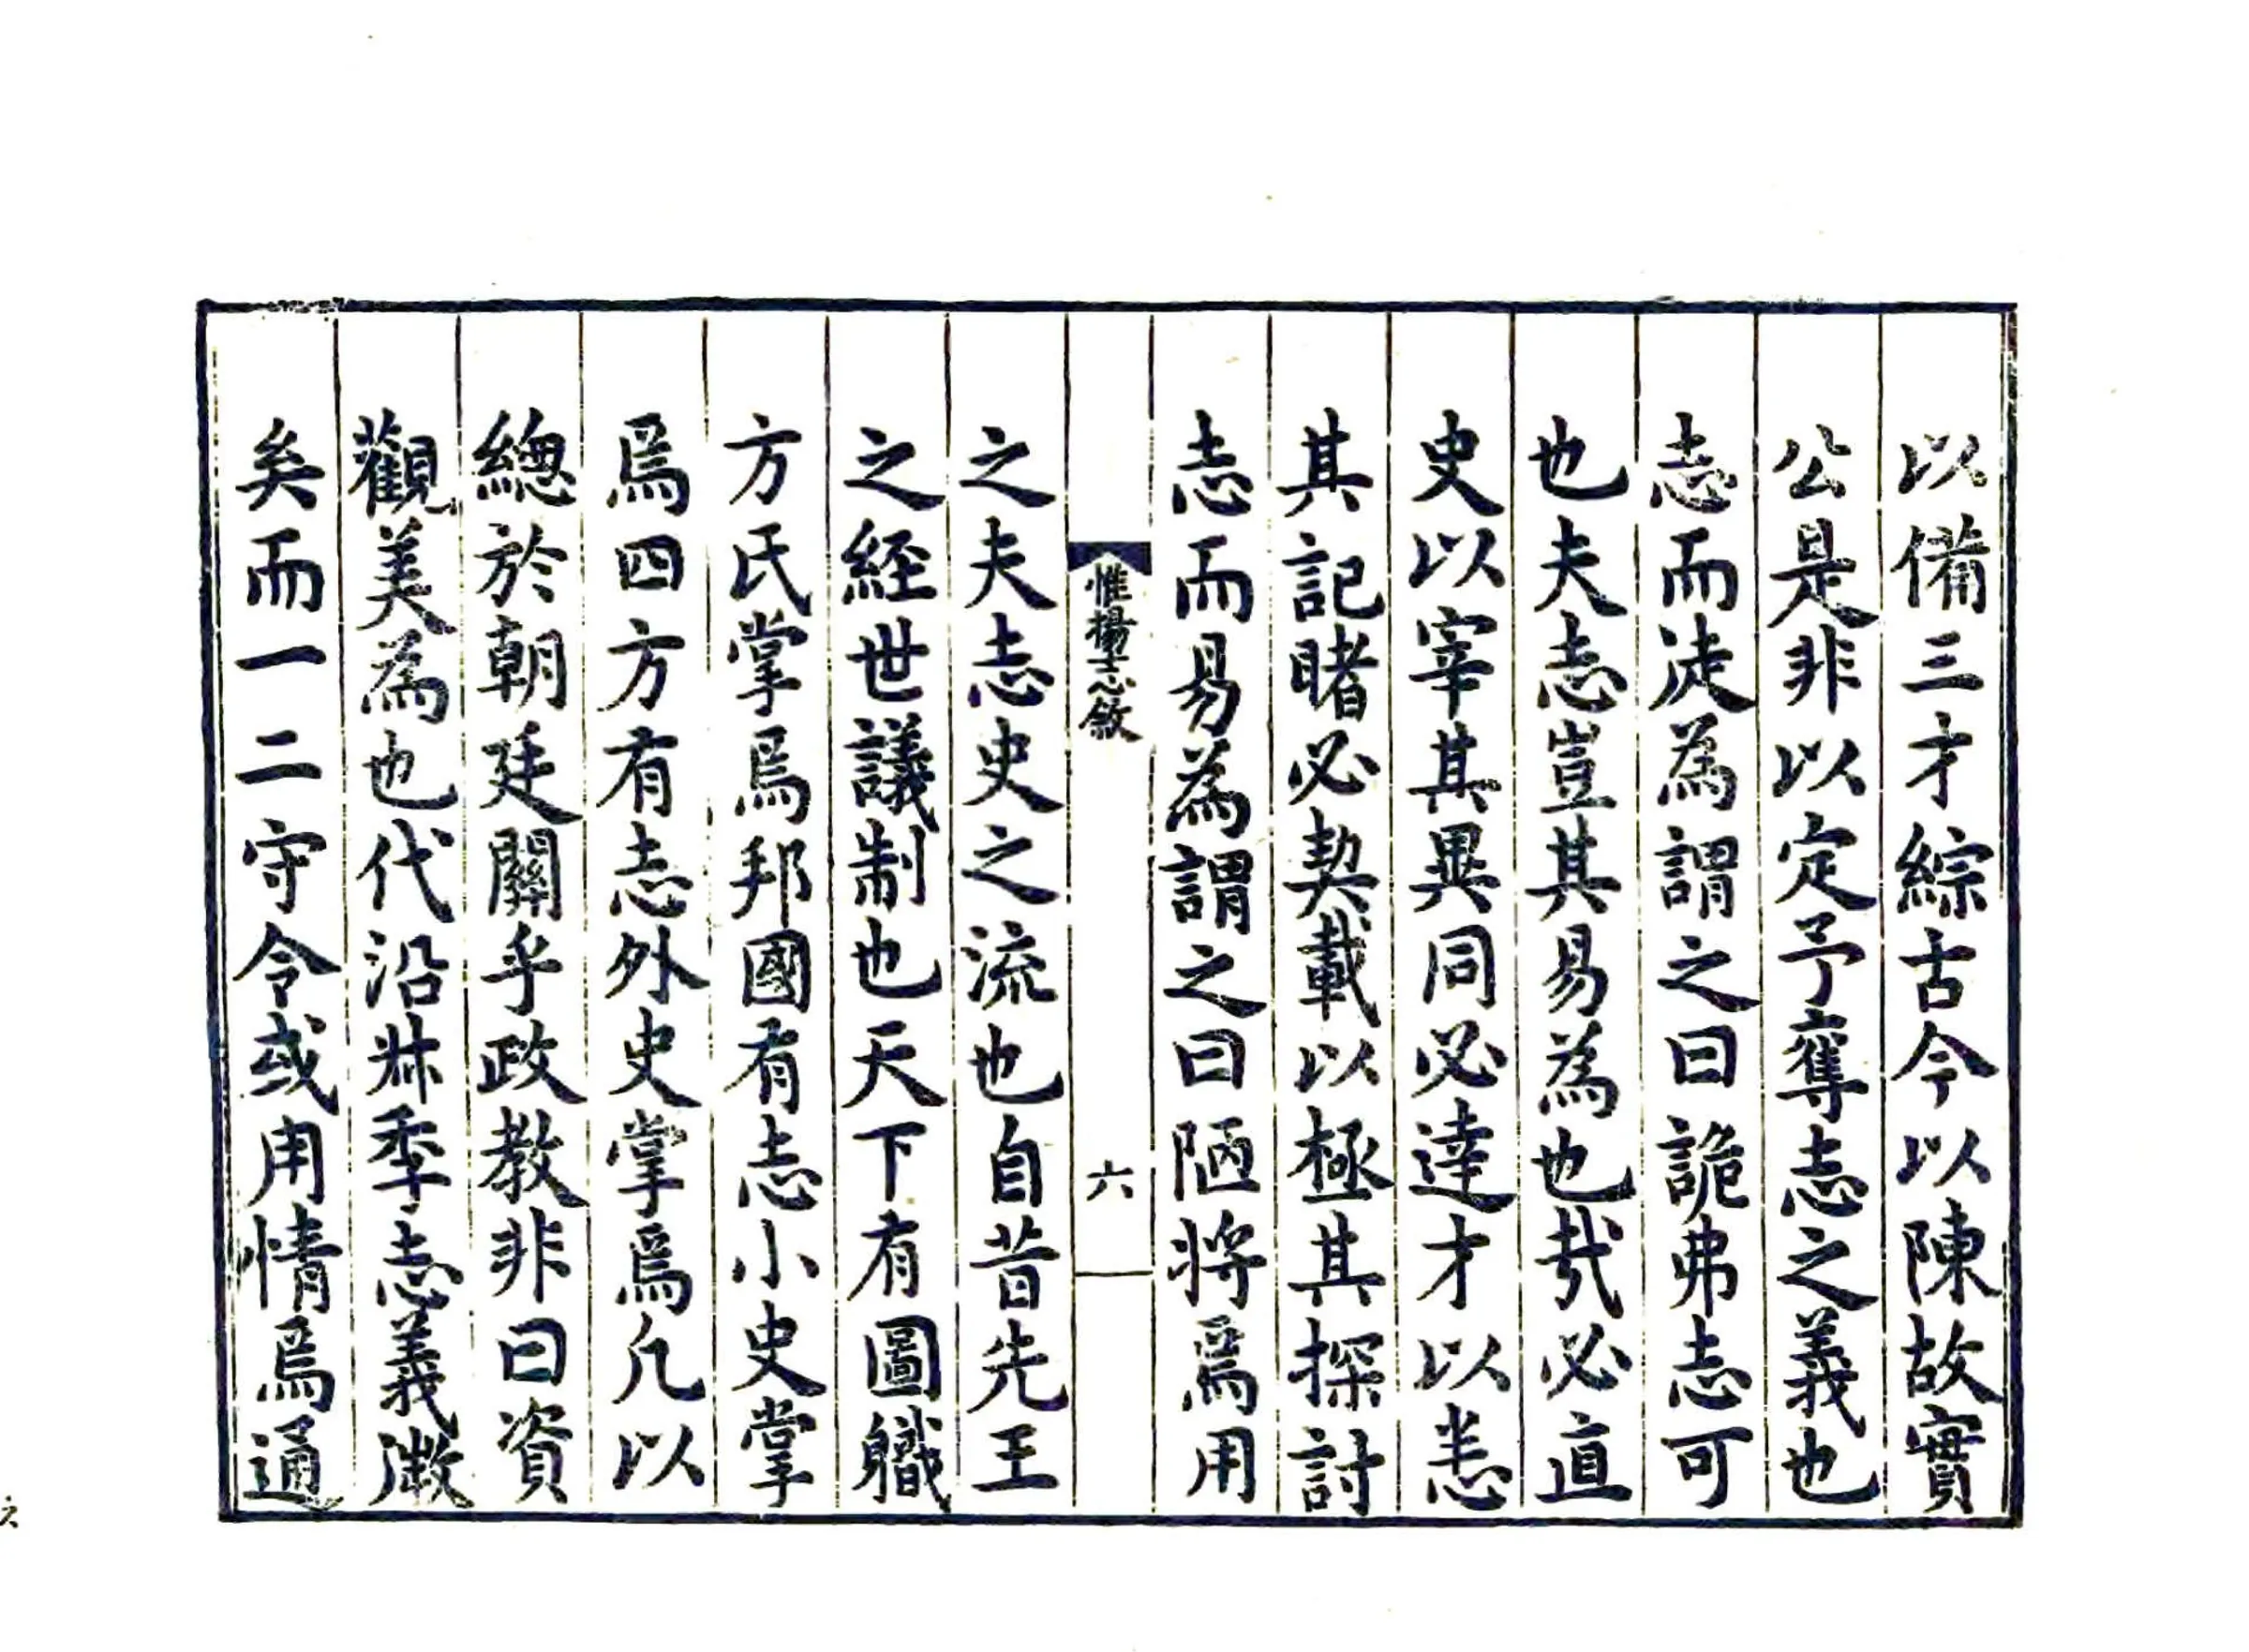 以備三才綜古今以陳故實
公是非以定予奪志之義也
志而徒為謂之曰詭弗志可
也夫志豈其易為也哉必直
史以宰其異同必達才以悉
其記睹必契載以極其探討
志而易為謂之曰陋將焉用
惟揚志敘
六
之夫志史之流也自昔先王
之經世議制也天下有圖職
方氏掌焉邦國有志小史掌
焉四方有志外史掌焉凡以
總於朝廷關乎政教非曰資
觀美為也代沿牀季志義溦
矣而一二守令或用情焉通
六